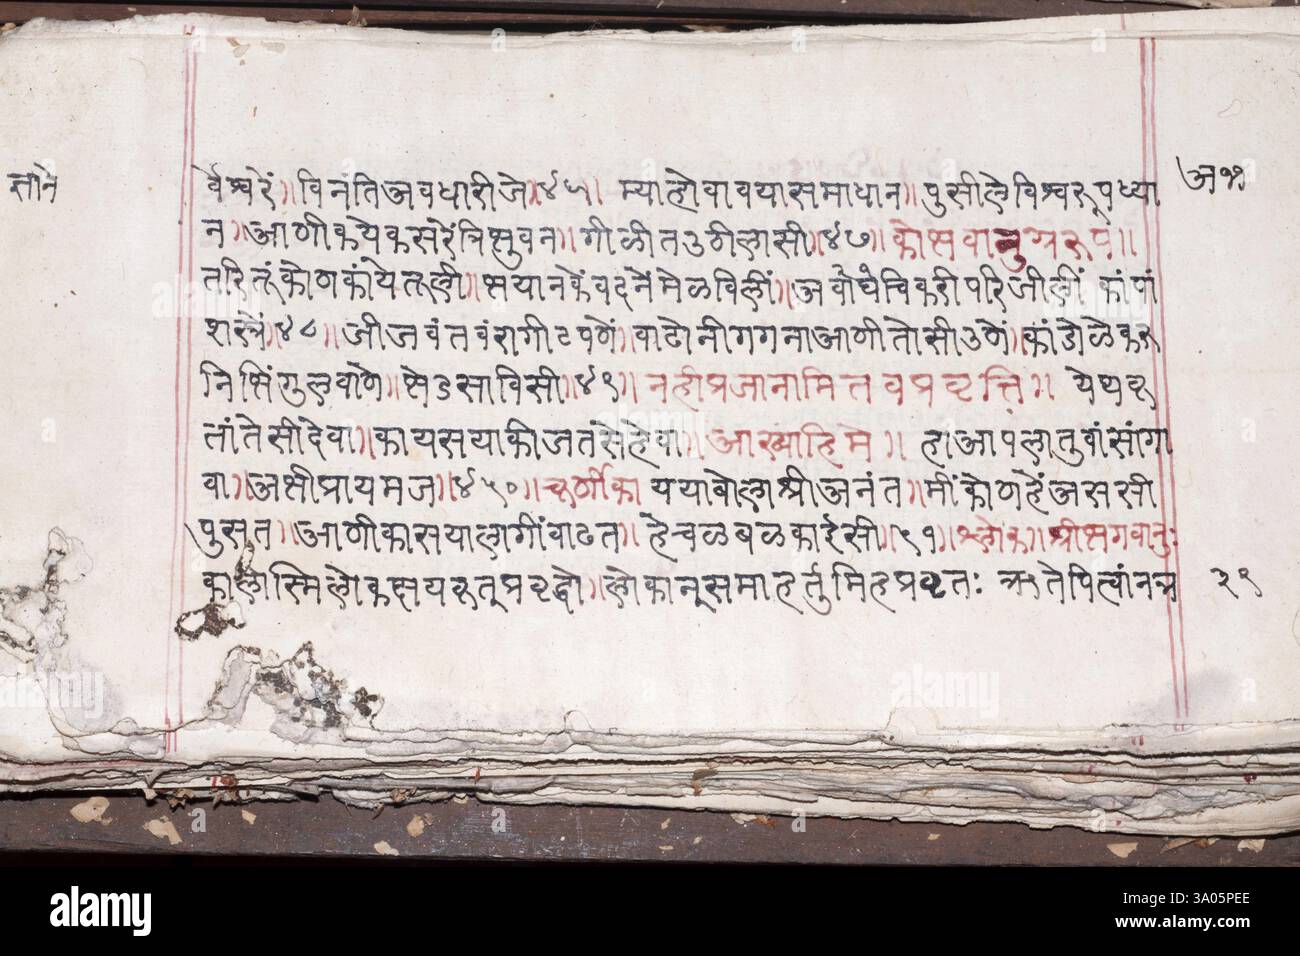 ज्ञाने
र्वेश्वरें॥विनंतिअवधारीजे॥४४६॥ म्यात्दोवावयासमाधान॥पुसीलेंविश्वरूपध्या अ११
न॥आणीकयेकसरेंत्रिभुवन॥गीळीतउठीलासी॥४७॥कोभवानुग्ररूपं॥
तरितूंकोणकांयेतुली॥भयानकेंवदनेंमेळविलीं॥अवोघेविकरीपरिजीलीं कांपां
शस्त्रें॥४८॥जीजवंतवंरागीटपणें॥वाढोनीगगनाआणीतोसीउणें॥कांडोळेकरू
निभिंगुलवाणें॥भेडसाविसी॥४९॥नहीप्रजानामितवप्रवृत्तिं॥ येथकृ
तांतेसीदेवा॥कायसयाकीजतसेहेवा॥आख्याहिमे॥ हाआपलातुवांसांगा
वा॥अभीप्रायमज॥४५०॥चूर्णीका ययाबोलाश्रीअनंत॥मींकोणहेंअससी
पुसत॥आणीकासयालागींवाढत॥हेन्चळबळकाईसी॥५१॥श्लोक॥श्रीभगवानुः
कालोस्मिलोकक्षयकृत्प्रवृद्धो॥लोकान्समाहर्तुमिहप्रवृतः ऋतेपित्वांनन २९
alamy
Image ID: 3A05PEE
www.alamy.com